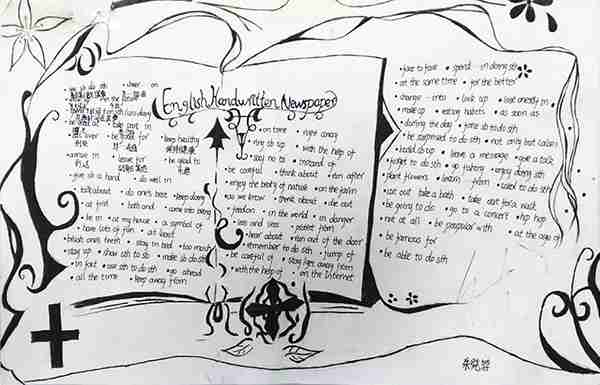 English Handwritten Newspaper
use sb do sth • over on
take part in
look for
arrive in • leave for
give sb a hand • do well in
keep healthy
be good to
• talk about • do one's best • keep doing
• at first • both and • come into being
• be in • at my house • a symbol of
• have lots of fun • at least
brush one's teeth • stay in bed • too much
• stay up • show sth to sb • make sb do sth
• in fact • use sth to do sth • go ahead
• all the time • keep away from
• on time • right away
• ring sb up • with the help of
• say no to • instead of
be careful • think about • run after
enjoy the beauty of nature • on the farm
as we know • think about • die out
• freedom • in the world • in danger
less and less • protect from
hear about • run out of the door
• remember to do sth • jump of
be careful of • stay away from
• with the help of • on the Internet
• face to face • spend in doing sth
• at the same time • for the better
change into • look up
• make up • eating habits • as soon as
during the day
be surprised to do sth • not only but (also)
• build up • leave a message • give a talk
forget to do sth • go fishing • enjoy doing sth
plant flowers • learn from • used to do sth
• take a bath • take out for a walk
be going to do • go to a concert • hip hop
• not at all • be popular with • at the age of
• be famous for
• be able to do sth